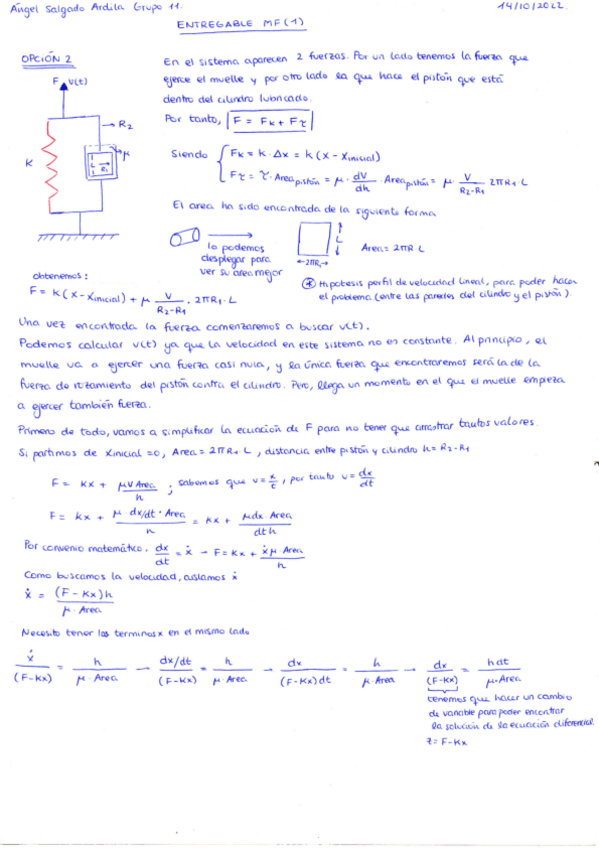 Ángel Salgado Ardila Grupo 11.
14/10/2022
ENTREGABLE MF(1)
OPCIÓN 2
F V(t)
R2
μ
L R1
K
En el sistema aparecen 2 fuerzas. Por un lado tenemos la fuerza que
ejerce el muelle y por otro lado la que hace el pistón que está
dentro del cilindro lubricado.
Por tanto, F = Fk + Fτ
Siendo { Fk = K · Δx = K (x - xinicial)
Fτ = τ · Areapistón = μ · dV/dh · Areapistón = μ · V/(R2-R1) 2πR1·L
El area ha sido encontrada de la siguiente forma
lo podemos
desplegar para
ver su area mejor
L
2πR1
Area = 2πR·L
* Hipotesis perfil de velocidad lineal, para poder hacer
el problema (entre las paredes del cilindro y el pistón).
obtenemos:
F = K(x - xinicial) + μ V/(R2-R1) · 2πR1·L
Una vez encontrada la fuerza comenzaremos a buscar v(t).
Podemos calcular v(t) ya que la velocidad en este sistema no es constante. Al principio, el
muelle va a ejercer una fuerza casi nula, y la única fuerza que encontraremos será la de la
fuerza de rozamiento del pistón contra el cilindro. Pero, llega un momento en el que el muelle empieza
a ejercer también fuerza.
Primero de todo, vamos a simplificar la ecuación de F para no tener que arrastrar tantos valores.
Si partimos de xinicial = 0, Area = 2πR1·L, distancia entre pistón y cilindro h = R2-R1
F = Kx + μV Area/h ; sabemos que v = x/t, por tanto v = dx/dt
F = Kx + μ · dx/dt · Area/h = Kx + μdx Area/dt h
Por convenio matemático. dx/dt = ẋ → F = Kx + ẋμ Area/h
Como buscamos la velocidad, aislamos ẋ
ẋ = (F - Kx)h/μ · Area
Necesito tener los terminos x en el mismo lado
ẋ/(F-Kx) = h/μ · Area → dx/dt/(F-Kx) = h/μ · Area → dx/(F-Kx)dt = h/μ · Area → dx/(F-Kx) = hdt/μ · Area
tenemos que hacer un cambio
de variable para poder encontrar
la solución de la ecuación diferencial.
z = F-Kx